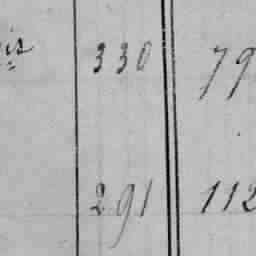 330 79
291 112